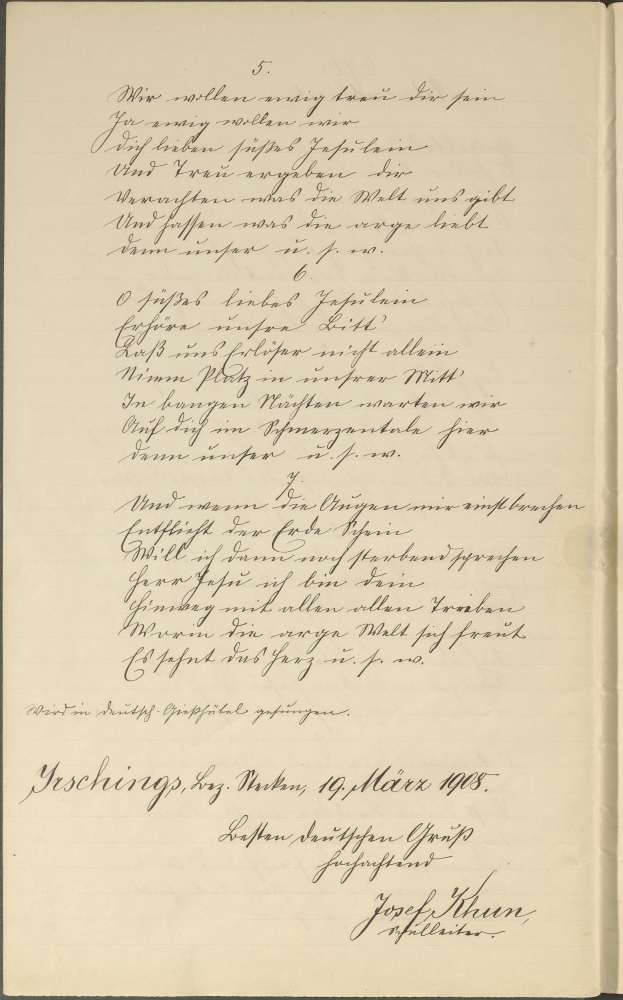 5.
Wir wollen ewig treu dir sein
Ja ewig wollen wir
Dich lieben süßes Jesulein
Und Treu ergeben dir
Verachten was die Welt uns gibt
Und hassen was die arge liebt
Denn unser u. s. w.
6.
O süßes liebes Jesulein
Erhöre unsre Bitt'
Laß uns Erlöser nicht allein
Nimm Platz in unsrer Mitt'
In bangen Nächten warten wir
Auf dich im Schmerzentale hier
Denn unser u. s. w.
7.
Und wenn die Augen mir einst brechen
Entflieht der Erde Schein
Will ich dann noch sterbend sprechen
Herr Jesu ich bin dein
Hinweg mit allen allen Trieben
Worin die arge Welt sich freut
Es sehnt das Herz u. s. w.
Wird in Deutsch-Gießhübel gesungen.
Irschings, Bez. Stecken, 19. März 1908.
Besten deutschen Gruß
hochachtend
Josef Khun,
Schulleiter.